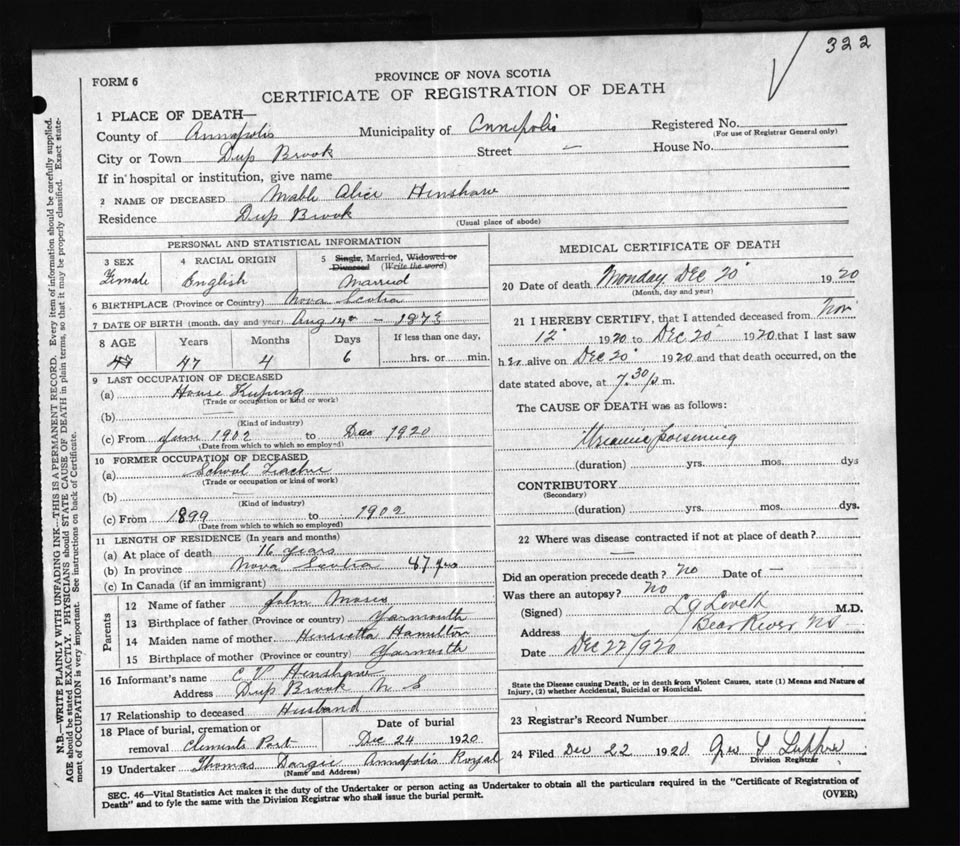 322
PROVINCE OF NOVA SCOTIA
FORM 6
CERTIFICATE OF REGISTRATION OF DEATH
1 PLACE OF DEATH—
County of Annapolis Municipality of Annapolis Registered No.
(For use of Registrar General only)
City or Town Deep Brook Street — House No.
If in hospital or institution, give name
2 NAME OF DECEASED Mable Alice Henshaw
Residence Deep Brook
(Usual place of abode)
PERSONAL AND STATISTICAL INFORMATION
3 SEX Female
4 RACIAL ORIGIN English
5 Single, Married, Widowed or Divorced (Write the word) Married
6 BIRTHPLACE (Province or Country) Nova Scotia
7 DATE OF BIRTH (month, day and year) Aug 14th – 1873
8 AGE Years Months Days If less than one day,
47 47 4 6 hrs. or min.
9 LAST OCCUPATION OF DECEASED
(a) House Keeping
(Trade or occupation or kind of work)
(b) —
(Kind of industry)
(c) From June 1902 to Dec 1920
(Date from which to which so employed)
10 FORMER OCCUPATION OF DECEASED
(a) School Teacher
(Trade or occupation or kind of work)
(b) —
(Kind of industry)
(c) From 1899 to 1902
(Date from which to which so employed)
11 LENGTH OF RESIDENCE (In years and months)
(a) At place of death 16 years
(b) In province Nova Scotia 47 yrs
(c) In Canada (if an immigrant)
Parents
12 Name of father John Moses
13 Birthplace of father (Province or country) Yarmouth
14 Maiden name of mother Henrietta Hamilton
15 Birthplace of mother (Province or country) Yarmouth
16 Informant's name E V Henshaw
Address Deep Brook N S
17 Relationship to deceased Husband
18 Place of burial, cremation or removal Clements Port
Date of burial Dec 24 1920
19 Undertaker Thomas Dargie Annapolis Royal
(Name and Address)
MEDICAL CERTIFICATE OF DEATH
20 Date of death Monday Dec 20 1920
(Month, day and year)
21 I HEREBY CERTIFY, that I attended deceased from Nov
12 1920 to Dec 20 1920 that I last saw
her alive on Dec 20 1920 and that death occurred, on the
date stated above, at 7.30 p.m.
The CAUSE OF DEATH was as follows:
Uraemic Poisoning
(duration) yrs. mos. dys
CONTRIBUTORY
(Secondary)
(duration) yrs. mos. dys.
22 Where was disease contracted if not at place of death?
—
Did an operation precede death? No Date of —
Was there an autopsy? No
(Signed) L J Lovett M.D.
Address Bear River NS
Date Dec 22/920
State the Disease causing Death, or in death from Violent Causes, state (1) Means and Nature of
Injury, (2) whether Accidental, Suicidal or Homicidal.
23 Registrar's Record Number
24 Filed Dec 22 1920
Division Registrar
SEC. 46—Vital Statistics Act makes it the duty of the Undertaker or person acting as Undertaker to obtain all the particulars required in the "Certificate of Registration of
Death" and to fyle the same with the Division Registrar who shall issue the burial permit.
(OVER)
N.B.—WRITE PLAINLY WITH UNFADING INK—THIS IS A PERMANENT RECORD. Every item of information should be carefully supplied.
AGE should be stated EXACTLY. PHYSICIANS should STATE CAUSE OF DEATH in plain terms, so that it may be properly classified. Exact statement of OCCUPATION is very important. See instructions on back of Certificate.